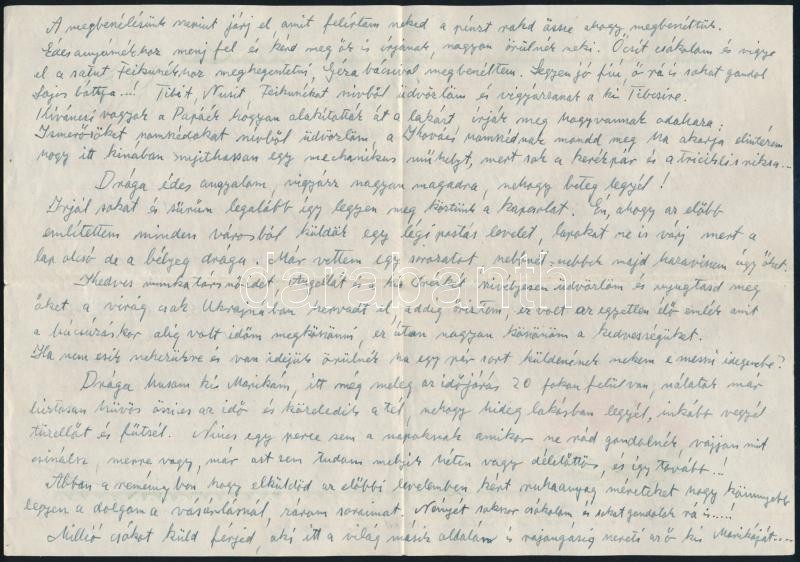 A megbeszélésünk szerint járj el, amit felírtam neked a pénzt rakd össze ahogy megbeszéltük.
Édesanyámékhoz menj fel és kérd meg őt is írjanak, nagyon örülnék neki. Öcsit csókolom és vigye
el a saját Feikunékhoz megkegentetni, Géza bácsival megbeszéltem. Legyen jó fiú, ő rá is sokat gondol
Lajos báttya...! Tibit, Nusit Feikunékat szívből üdvözlöm és vigyázzanak a ki Tibcsire.
Kíváncsi vagyok a Papáék hogyan alakították át a lakást írják meg hogy vannak odahaza.
Ismerősöket szomszédokat szívből üdvözlöm, a Kovács szomszédnak mondd meg ha akarja elintézem
hogy itt kínában nyithasson egy mechanikus műhelyt, mert sok a kerékpár és a triciklis riksa...
Drága édes angyalom, vigyázz nagyon magadra, nehogy beteg legyél!
Írjál sokat és sűrűn legalább így legyen meg köztünk a kapcsolat. Én, ahogy az előbb
említettem minden városból küldök egy légipostás levelet, lapokat ne is várj mert a
lap olcsó de a bélyeg drága. Már vettem egy sorozatot szebbnél-szebbek majd hazaviszem úgy őket.
Kedves munkatársnőidet, Angellát és a kis Icukét szívélyesen üdvözlöm és nyugtasd meg
őket a virág csak Ukrajnában hervadt el, addig őriztem, ez volt az egyetlen élő emlék amit
a búcsúzáskor alig volt időm megköszönni, ez úton nagyon köszönöm a kedvességüket.
Ha nem esik nehezükre és van idejük örülnék ha egy pár sort küldenének nekem e messzi idegenbe?
Drága Musam kis Marikám, itt még meleg az időjárás 20 fokon felül van, nálatok már
biztosan hűvös őszies az idő és közeledik a tél, nehogy hideg lakásban legyél, inkább vegyél
tüzellőt és fűtsél. Nincs egy perce sem a napoknak amikor ne rád gondolnék, vajjon mit
csinálsz, merre vagy, már azt sem tudom melyik héten vagy délelőttös, és így tovább..!
Abban a reményben hogy elküldöd az előbbi levelemben kért ruhaanyag méreteket hogy könnyebb
legyen a dolgom a vásárlásnál, zárom soraimat. Nényét sokszor csókolom és sokat gondolok rá is...!
Millió csókot küld férjed, aki itt a világ másik oldalán is rajongásig szereti az ő kis Marikáját...
darabanth